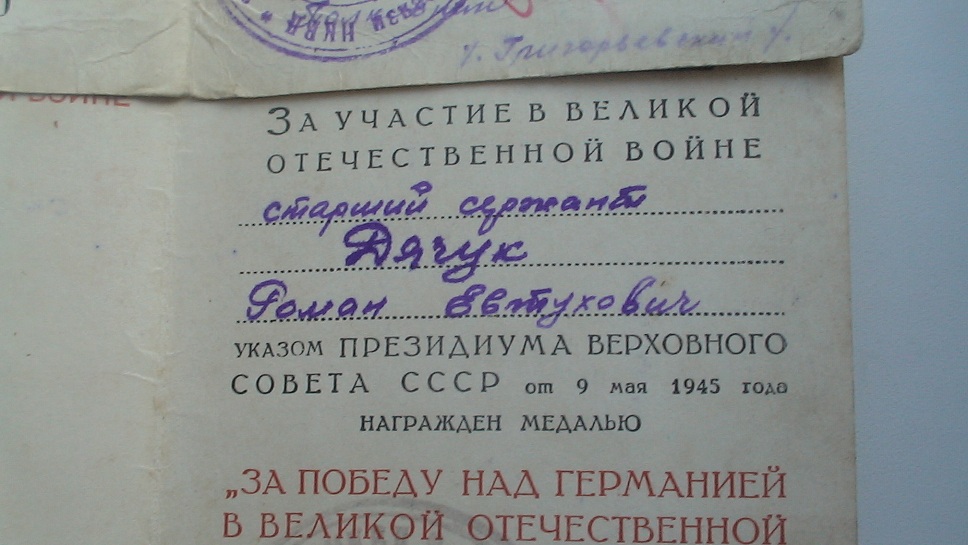 НКВД
г. Григорьевский г.
Й ВОЙНЕ
ЗА УЧАСТИЕ В ВЕЛИКОЙ
ОТЕЧЕСТВЕННОЙ ВОЙНЕ
старший сержант
Дячук
Роман Евтухович
УКАЗОМ ПРЕЗИДИУМА ВЕРХОВНОГО
СОВЕТА СССР от 9 мая 1945 года
НАГРАЖДЕН МЕДАЛЬЮ
„ЗА ПОБЕДУ НАД ГЕРМАНИЕЙ
В ВЕЛИКОЙ ОТЕЧЕСТВЕННОЙ